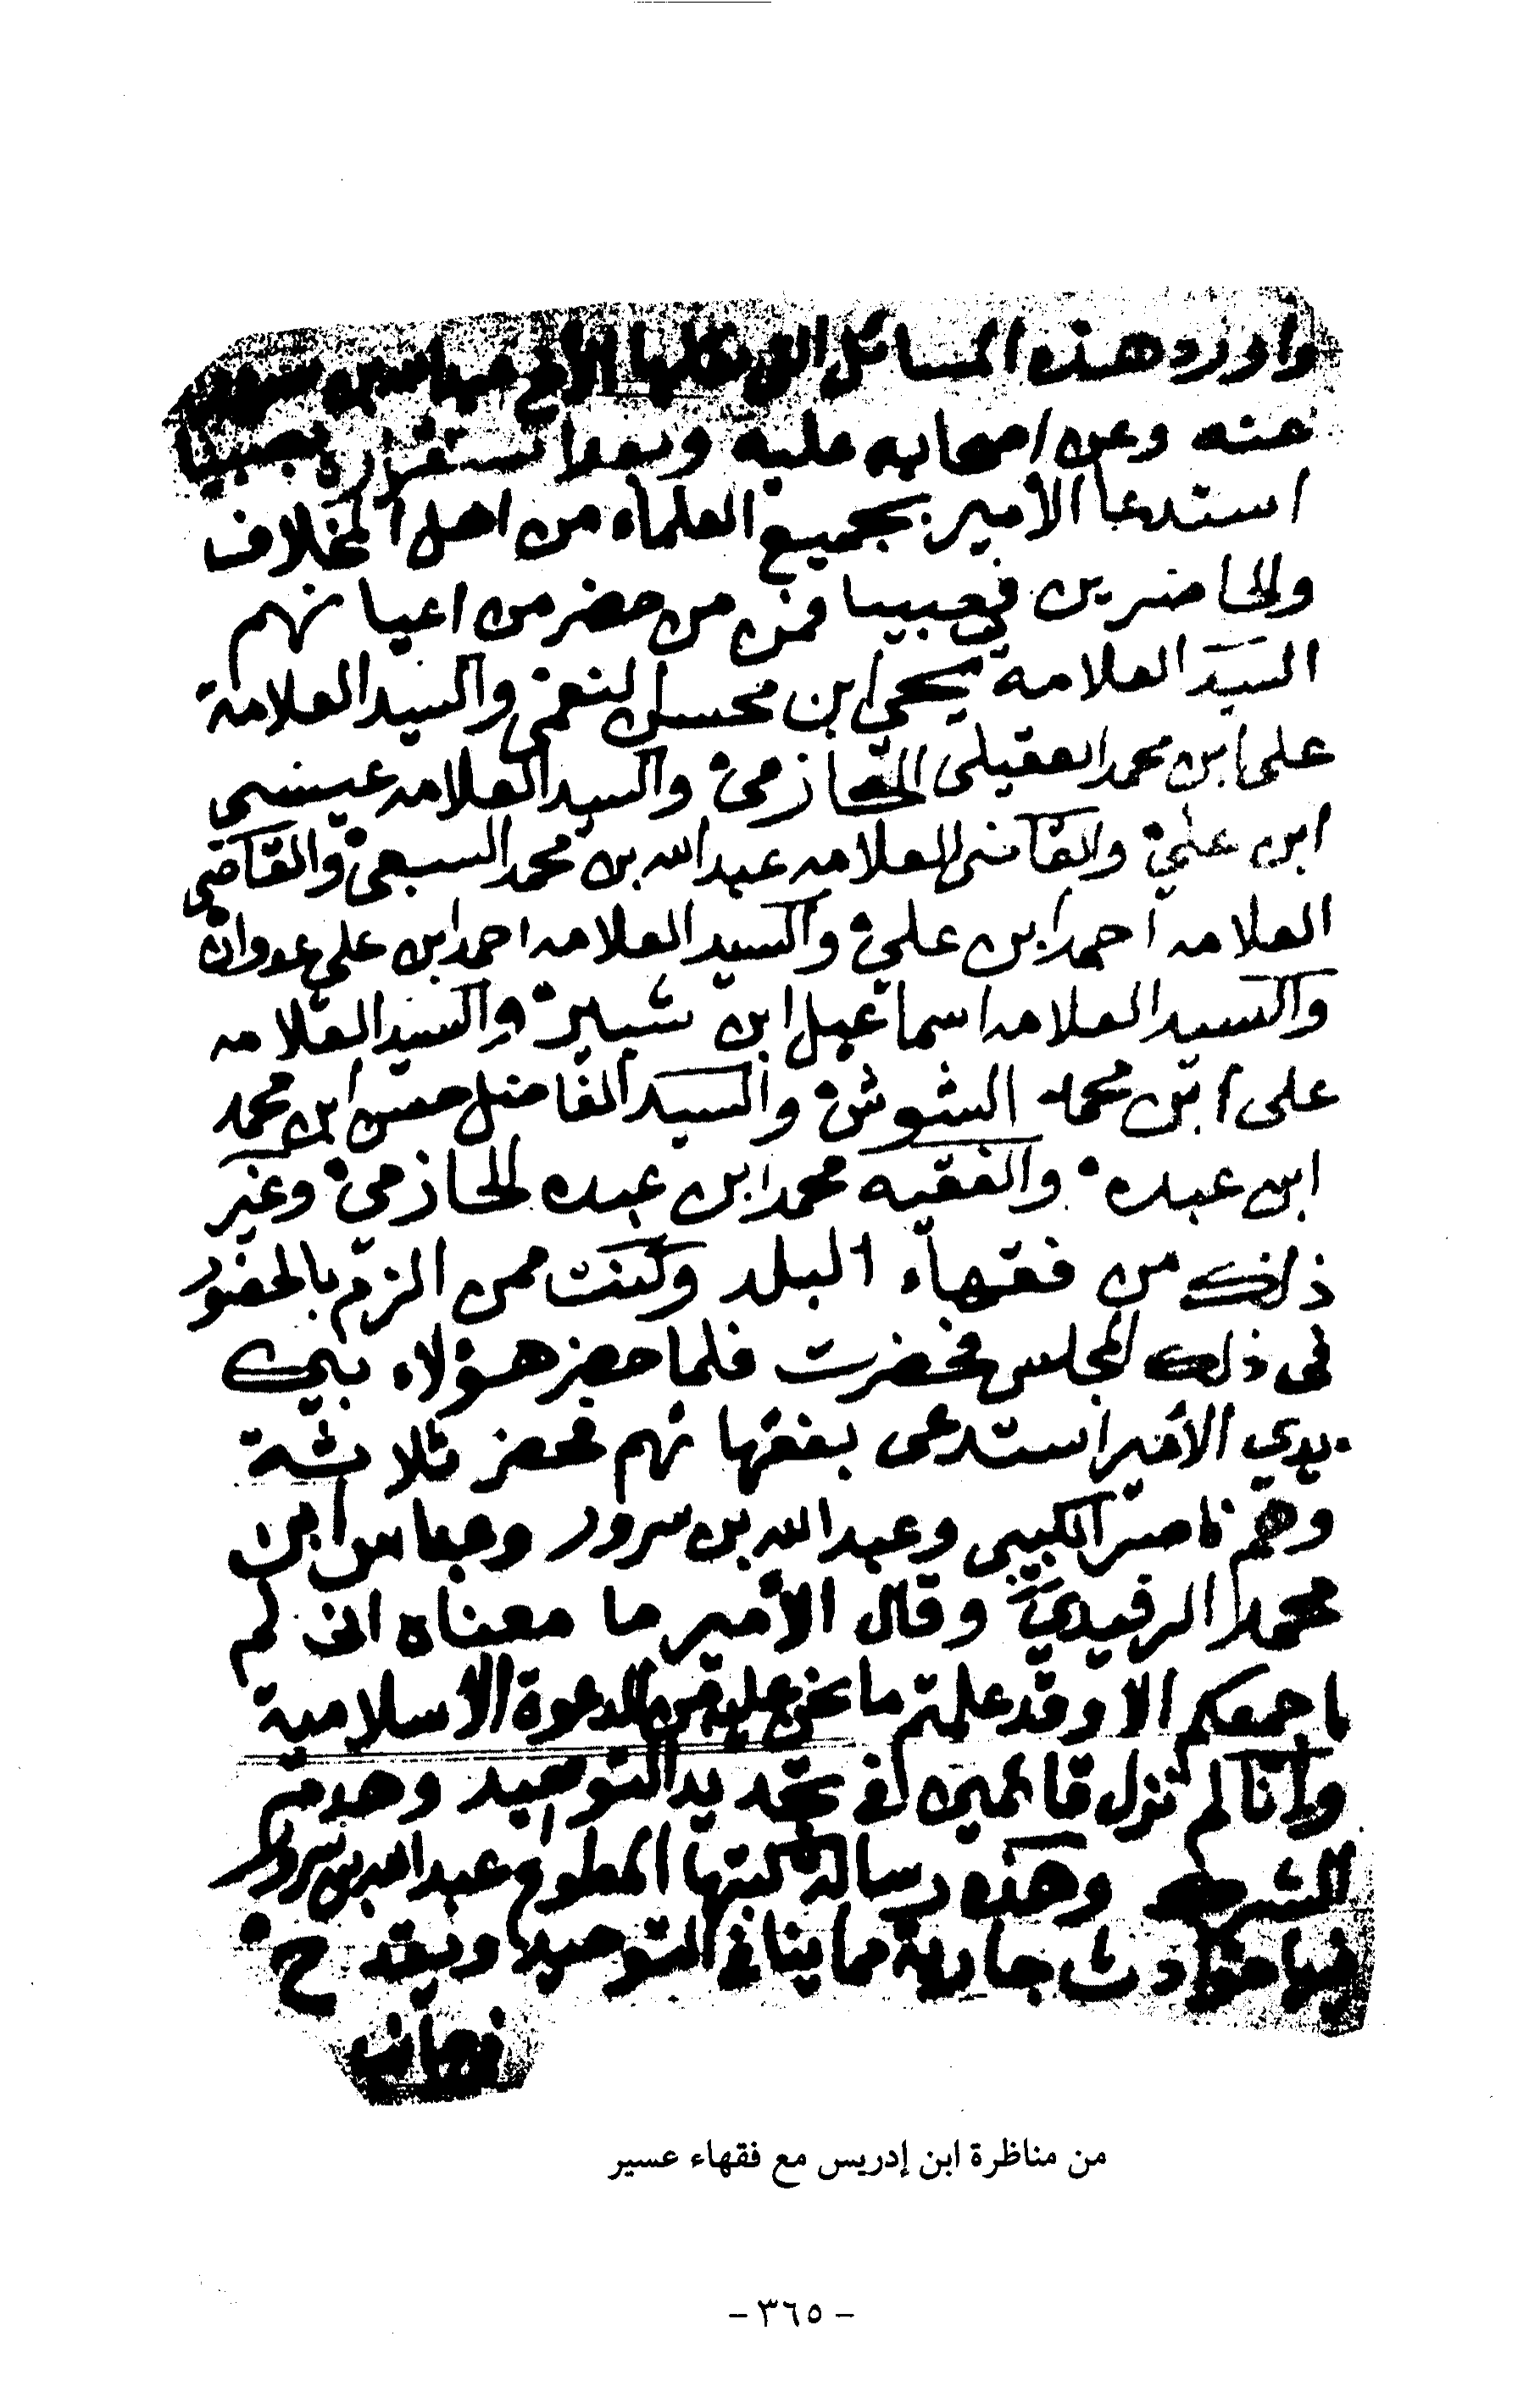 واورد هذه المسائل التى نكلها
عنه وعن اصحابه عليه وبعد استقراره بصبيا
استدعا الأمير بجميع العلماء من اهل المخلاف
والحاضرين في صبيا فمن من حضر من اعيانهم
السيد العلامة يحي ابن محسن النعمي والسيد العلامة
على ابن محمد العقيلى الحازمي والسيد العلامه عيسى
ابن علي والقاضى العلامه عبد الله بن محمد السبعي والقاضي
العلامه احمد ابن علي والسيد العلامه احمد ابن علي عدوان
والسيد العلامه اسماعيل ابن شبير والسيد العلامه
على ابن محمد الشوش والسيد الفاضل حسن ابن محمد
ابن عبده والفقيه محمد ابن عبده الحازمي وغير
ذلك من فقهاء البلد وكنت ممن الزم بالحضور
في ذلك المجلس فحضرت فلما حضر هؤلاء بين
يدي الأمير استدعى بفقهائهم فحضر ثلاثة
وهم ناصر الكبيبى وعبد الله بن سرور وعباس ابن
محمد الرفيدي وقال الأمير ما معناه انى لم
اجمعكم الا وقد علمتم ما نحن عليه من الدعوة الاسلامية
وانا لم نزل قائمين في تجديد التوحيد وهدم
الشرك وهذه رسالة كتبها المطوع عبد الله بن سرور
فيها حوادث جارية مما ينافي التوحيد ويقدح
من مناظرة ابن إدريس مع فقهاء عسير
- ٣٦٥ -